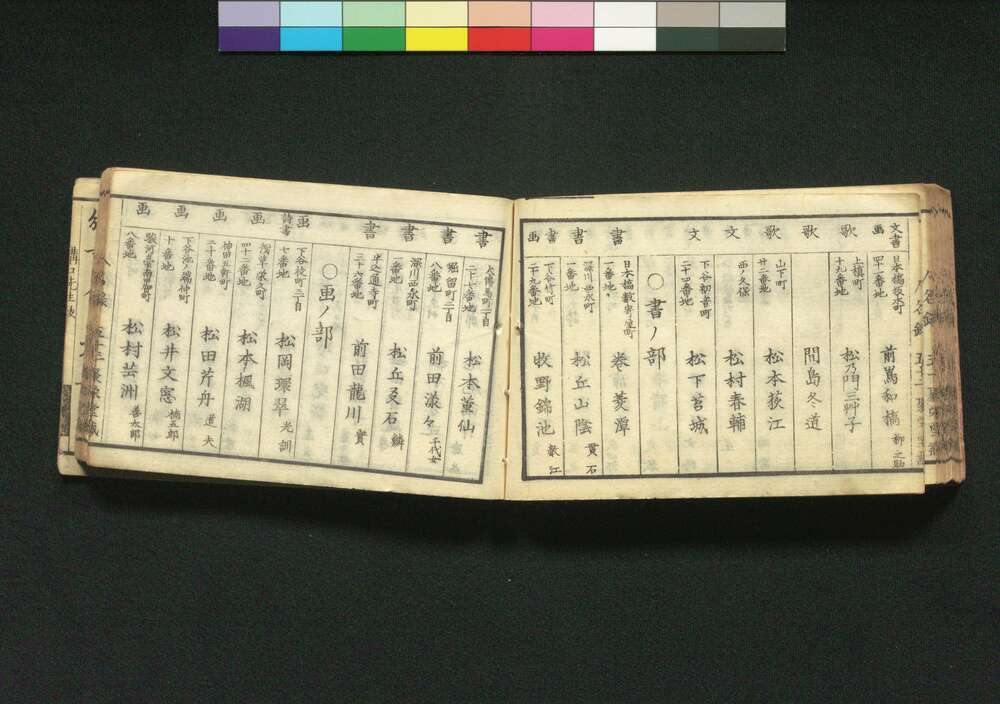 文書画
日本橋坂本町
四十一番地
前嶌和橋
柳之助
歌
上槙町
十九番地
松乃門三艸子
歌
間島冬道
歌
山下町
廿二番地
松本荻江
文
西ノ久保
松村春輔
文
下谷初音町
二十四番地
松下筥城
○書ノ部
書
日本橋数寄屋町
一番地
巻菱潭
書
深川西永町
一番地
松丘山陰
貫石
書画
下谷竹町
二十九番地
牧野錦池
歌江
書
大傳馬町二丁目
二十七番地
松本董仙
書
堀留町二丁目
八番地
前田漾々
千代女
書
深川西永町
一番地
松丘叐石
鱗
書
牛込通寺町
三十六番地
前田龍川
實
○画ノ部
画詩書
下谷徒町三丁目
七番地
松岡環翠
光訓
画
浅草栄久町
四十二番地
松本楓湖
画
神田五軒町
二十番地
松田芹舟
道夫
画
下谷池ノ端仲町
十番地
松井文窓
楠五郎
画
八番地
松村芸洲
善太郎